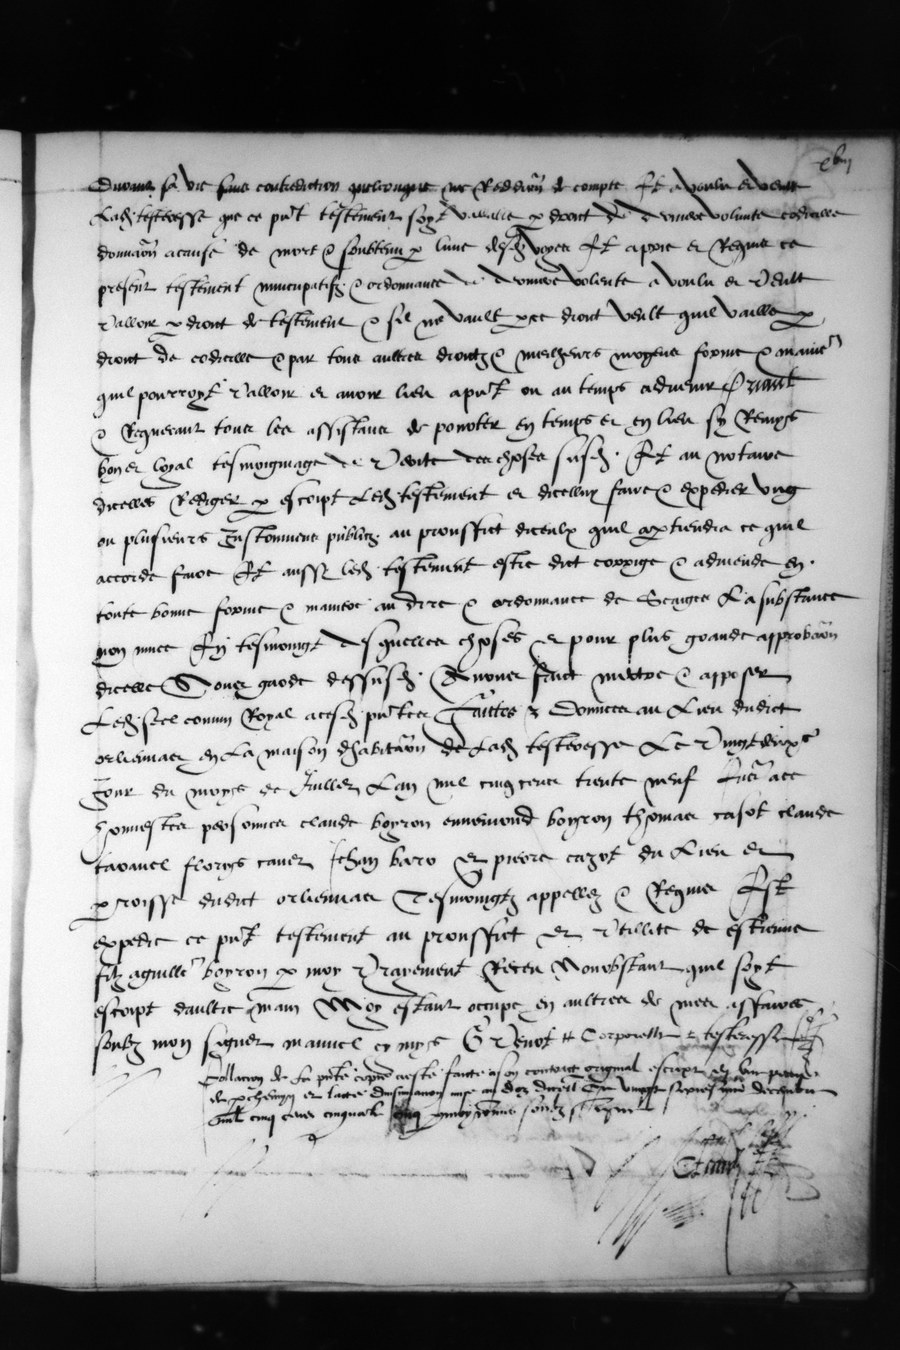 durant sa vie sans contradiction quelconque ne Reddition de compte Et a voulu et veult
Lad. testeresse que ce pnt testement soyt vallable p droict de derniere volunte codicille
donnation a cause de mort & soubtenu p lune desd. voyes Et apres et Regme ce
present testement nuncupatifz & ordonnance de derniere volente a voulu et Veult
Valloir p droict de testement & sil ne vault p ce droict veult quil vaille p
droict de codicille & par tous aultres droictz & meilheurs moyens forme & maniere
quil pourroyt Valloir et avoir lieu a pnt ou au temps advenir Priant
& Requerant tous les assistans de porter en temps et en lieu sy Requis
bon et loyal tesmoignage de Verite des choses susd. Et au notaire
dicelles Rediger p escript Led. testement et dicelluy faire & expedier ung
ou plusieurs Instrumens publicz au prouffict diceulx quil appartiendra ce quil
accorde faire Et aussy led. testement estre dict corrige & admende en
toute bonne forme & maniere au dire & ordonnance de Saiges La substance
non muee En tesmoingt desquelles choses et pour plus grande approbation
dicelle Nous garde dessusd. Avons faict mettre & apposer
Led. seel commun Royal a cesd. pntes Faictes & Donnees au Lieu dudict
orlienas en La maison dhabitation de Lad. testeresse Le Vingtdeuxe
Jour du moys de Juillet Lan mil cinq cens trente neuf Presens ace
honnestes personnes claude boyron ennemond boyron thomas casot claude
tavanel florys caver Jehan baro et pierre cazot du Lieu et
parroisse dudict orlienas Tesmoingtz appellez & Requis Est
expedie ce pnt testement au prouffict et Utillite de estienne
filz aguille boyron p moy Vrayement Receu Nonobstant quil soyt
escript daultre main Moy estant occupe en aultres de mes affaires
soubz mon signet manuel cy mys
Collation de La pnte coppie a este faicte a son contract original escript en
de parchemyn
mil cinq cens cinquante